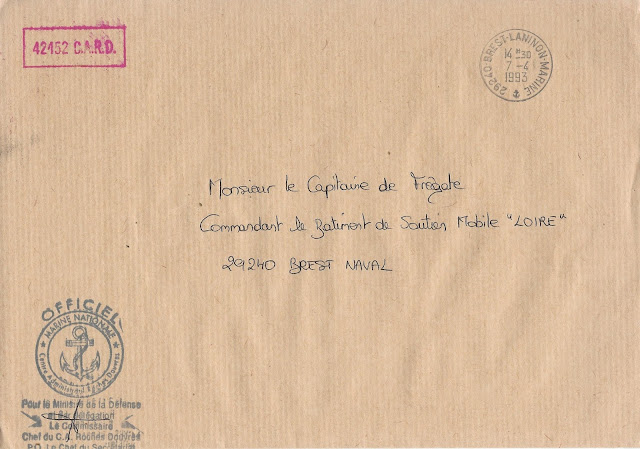 42452 C.A.R.D.
29240-BREST-LANINON-MARINE
14 H30
7-4
1993
Monsieur le Capitaine de Frégate
Commandant le Batiment de Soutien Mobile "LOIRE"
29240 BREST NAVAL
OFFICIEL
MARINE NATIONALE
Centre Administratif Roches Douvres
Pour le Ministre de la Défense
et par délégation
Le Commissaire
Chef du C.A. Roches Douvres
P.O. Le Chef du